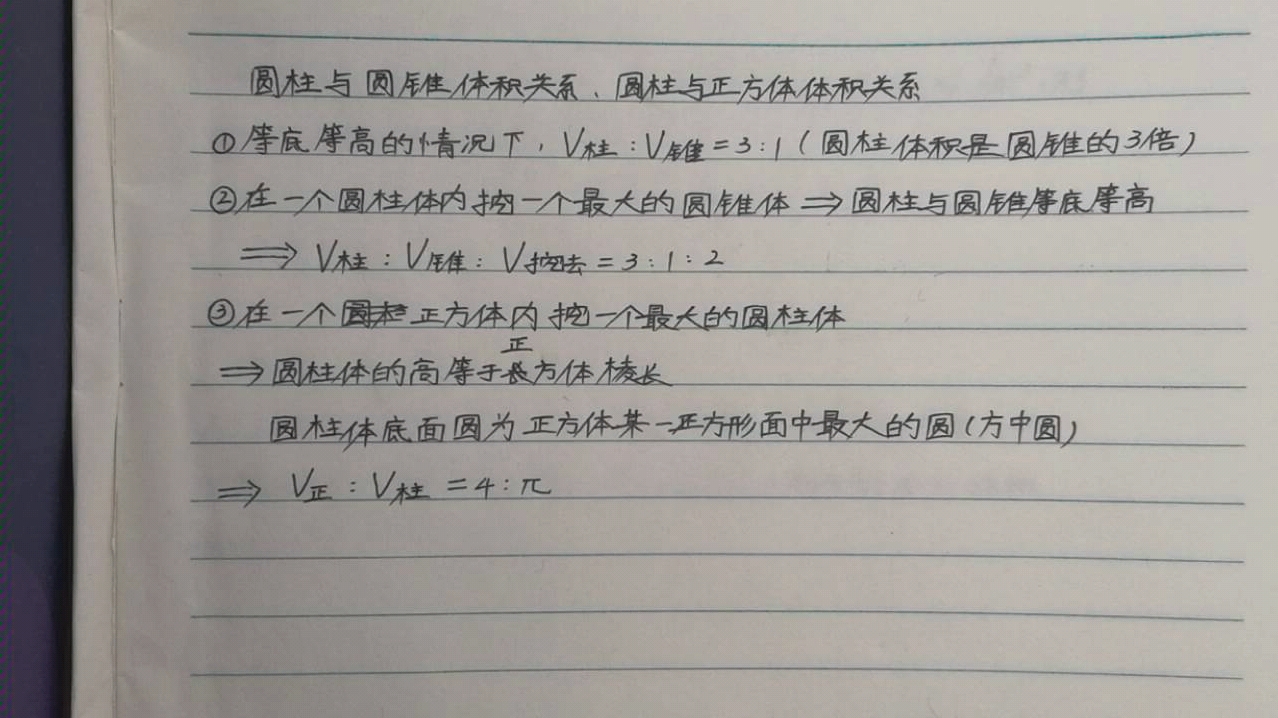 圆柱与圆锥体积关系、圆柱与正方体体积关系
①等底等高的情况下，V柱：V锥=3：1（圆柱体积是圆锥的3倍）
②在一个圆柱体内挖一个最大的圆锥体⇒圆柱与圆锥等底等高
⇒V柱：V锥：V挖去=3：1：2
③在一个正方体内挖一个最大的圆柱体
⇒圆柱体的高等于正方体棱长
圆柱体底面圆为正方体某一正方形面中最大的圆（方中圆）
⇒V正：V柱=4：π